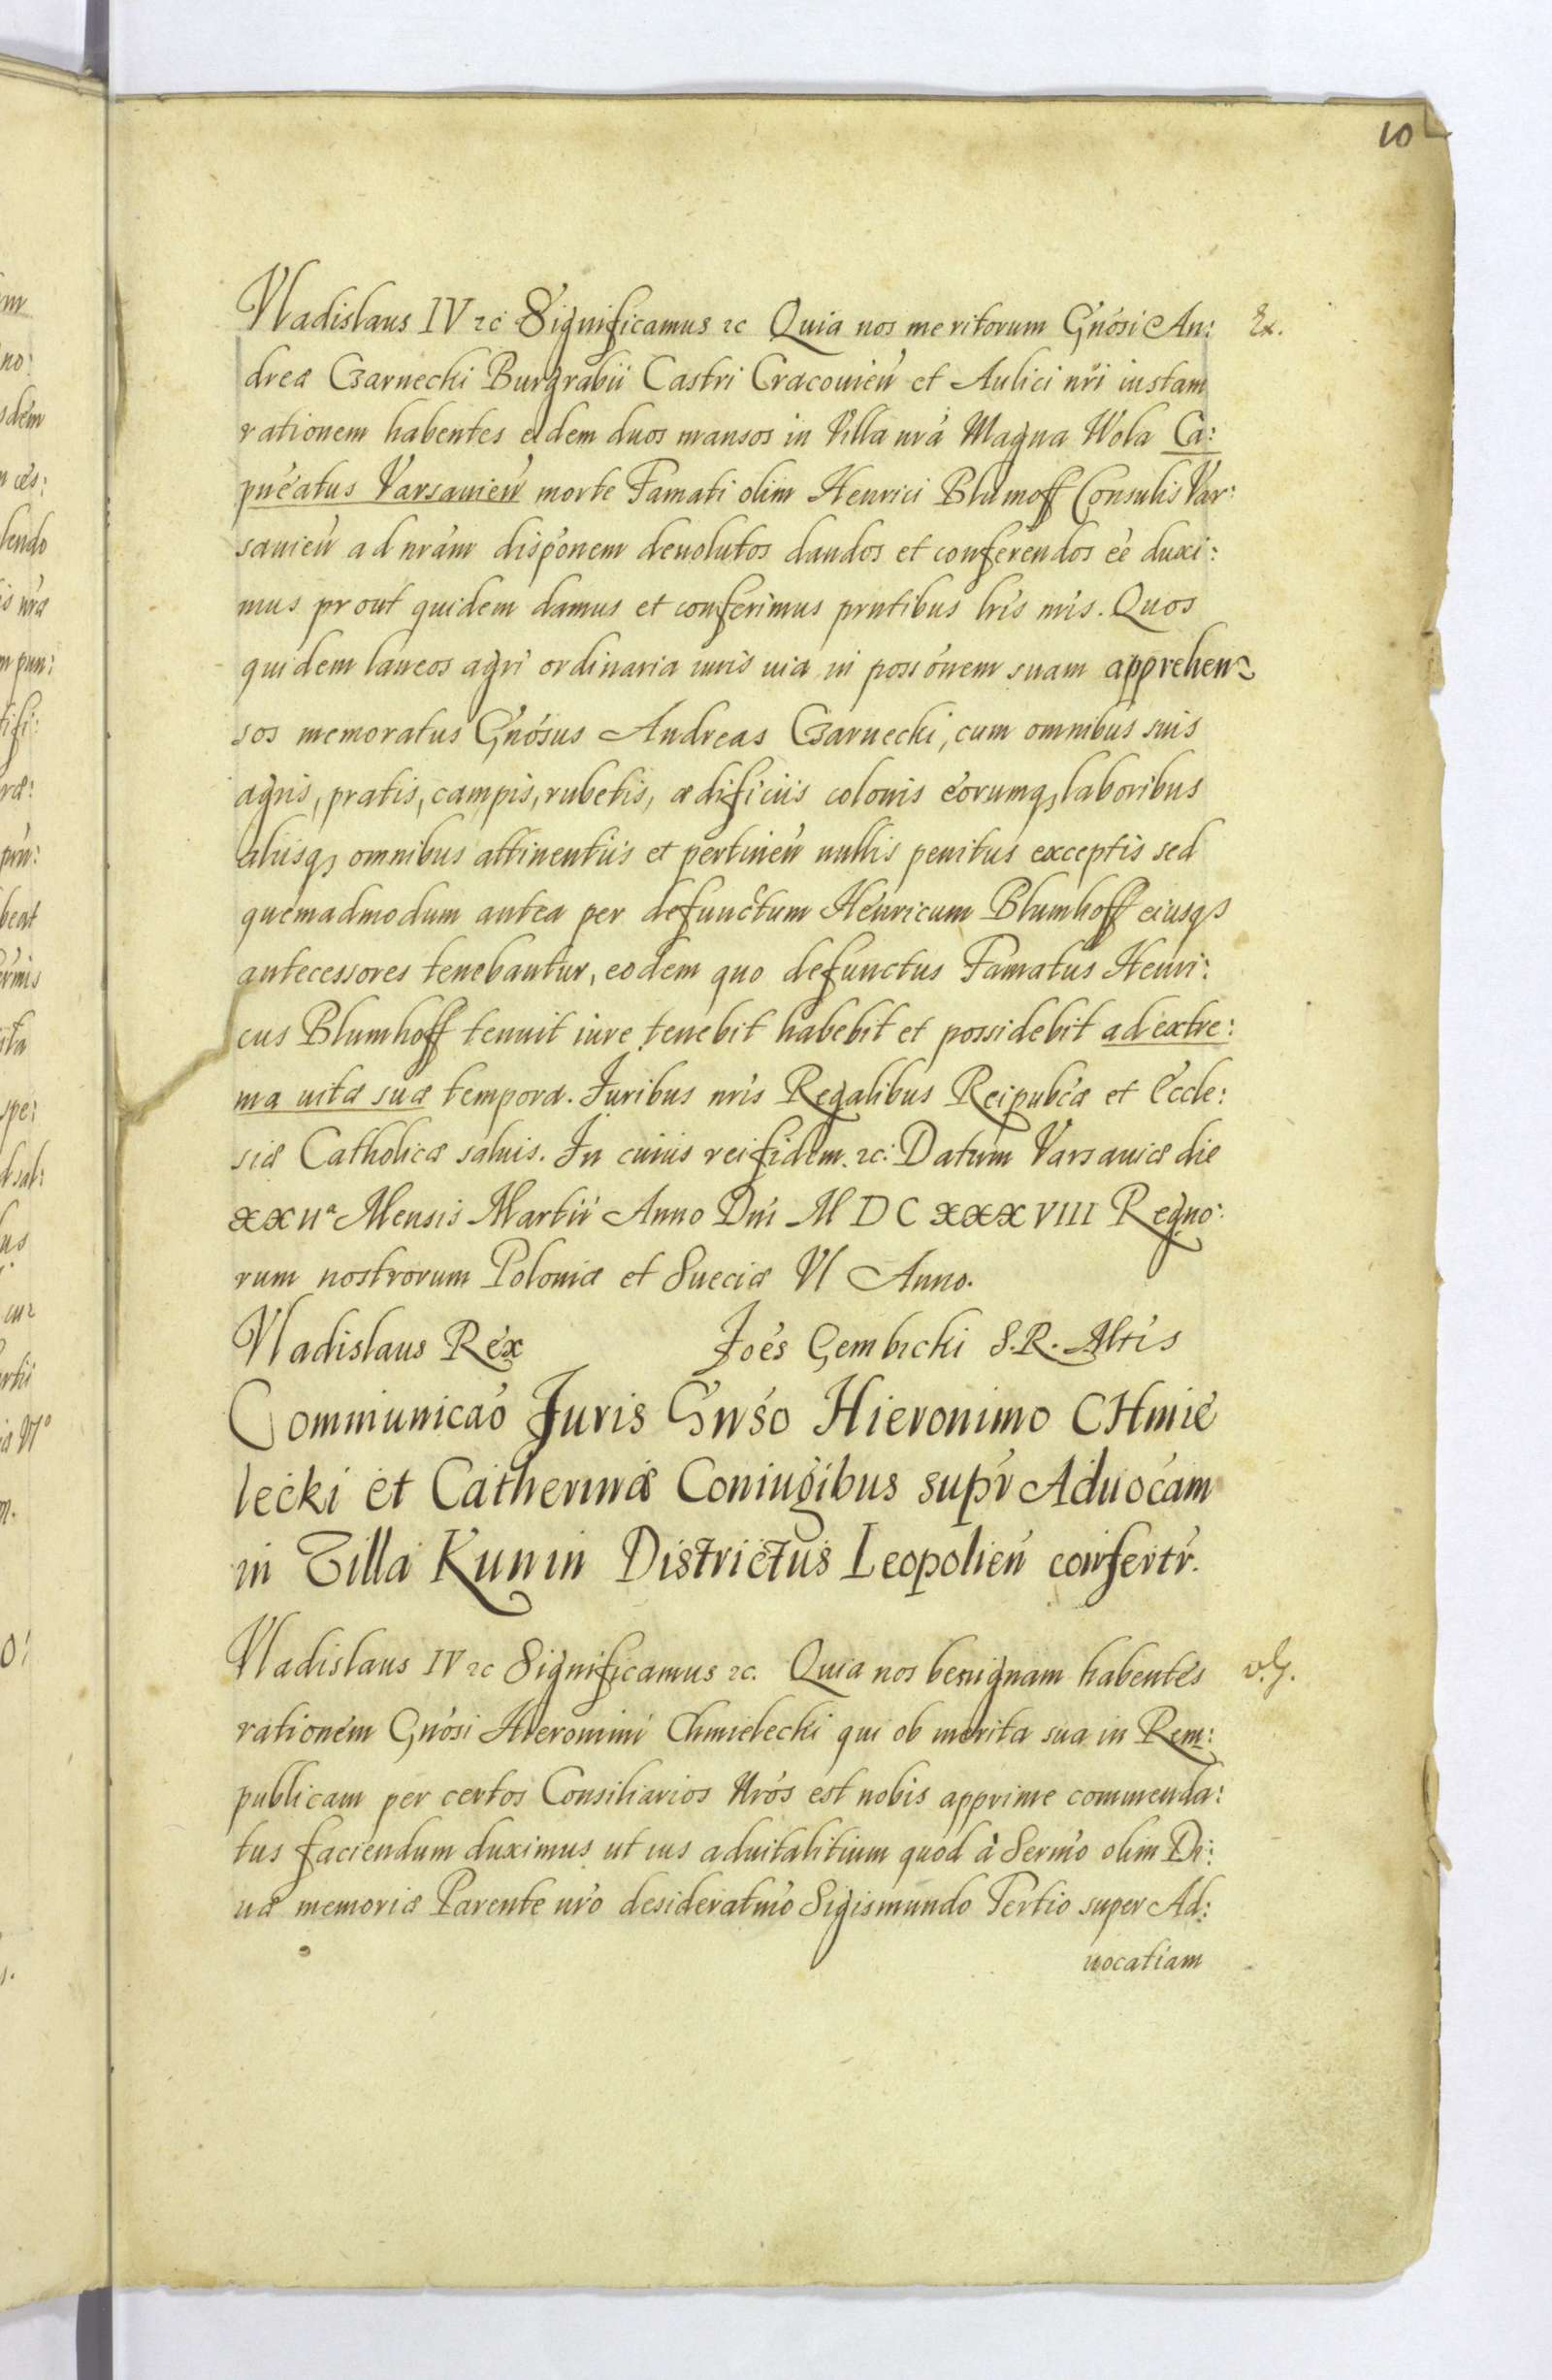 10
Vladislaus IV etc Significamus etc Quia nos meritorum Gnósi An: Ex.
dreæ Czarnecki Burgrabii Castri Cracouień et Aulici nri iustam
rationem habentes eidem duos mansos in Villa nrá Magna Wola Ca:
pneátus Varsauień morte Famati olim Henrici Blumoff Consulis Var:
sauień ad nrám dispónem deuolutos dandos et conferendos éé duxi:
mus prout quidem damus et conferimus prntibus lris nris. Quos
quidem laneos agri ordinaria iuris uia in possónem suam apprehen:
sos memoratus Gnósus Andreas Czarnecki, cum omnibus suis
agris, pratis, campis, rubetis, ædificiis colonis eorumq, laboribus
aliisq, omnibus attinentiis et pertineń nullis penitus exceptis sed
quemadmodum antea per defunctum Henricum Blumhoff eiusq,
antecessores tenebantur, eodem quo defunctus Famatus Henri:
cus Blumhoff tenuit iure tenebit habebit et possidebit ad extre:
ma uitæ suæ tempora. Iuribus nris Regalibus Reipubcæ et Eccle:
siæ Catholicæ saluis. In cuius rei fidem. etc: Datum Varsauiæ die
XXIIa Mensis Martii Anno Dni M D C XXXVIII Regno:
rum nostrorum Poloniæ et Sueciæ VI Anno.
Vladislaus Rex Joés Gembicki S.R. Mtis
Communicaó Juris Gnśo Hieronimo CHmie
lecki et Catherinæ Coniugibus supr Aduocám
in Villa Kunin Districtus Leopolień confertr.
Vladislaus IV etc Significamus etc. Quia nos benignam habentes v.G.
rationem Gnósi Hieronimi Chmielecki qui ob merita sua in Rem:
publicam per certos Consiliarios Nrós est nobis apprime commenda:
tus faciendum duximus ut ius aduitalitium quod à Sermo olim Di:
uæ memoriæ Parente nró desideratmo Sigismundo Tertio super Ad:
uocatiam